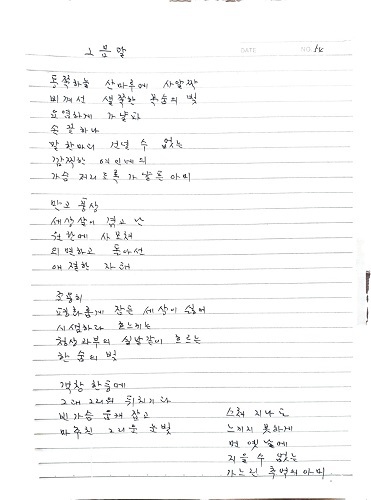 그믐달
DATE NO.
동쪽하늘 산마루에 사알짝
비껴선 샐쭉한 목숨의 빛
요염하게 가냘파
손 끝 하나
말 한마디 건넬 수 없는
깜찍한 여인네의
가슴 저리도록 가냘픈 아미
만고 풍상
세상살이 겪고 난
원한에 사모쳐
외면하고 돌아선
애절한 자태
조용히
평화롭게 잠든 세상이 싫어
시샘하다 흐느끼는
청상과부의 실밥같이 흐르는
한 숨의 빛
객창 한등에
그대 그리워 뒤척이다
빈가슴 움켜 잡고
마주친 그리운 눈빛
스쳐 지나도
느끼지 못하게
먼 옛날에
지울 수 없는
가느린 추억의 아미